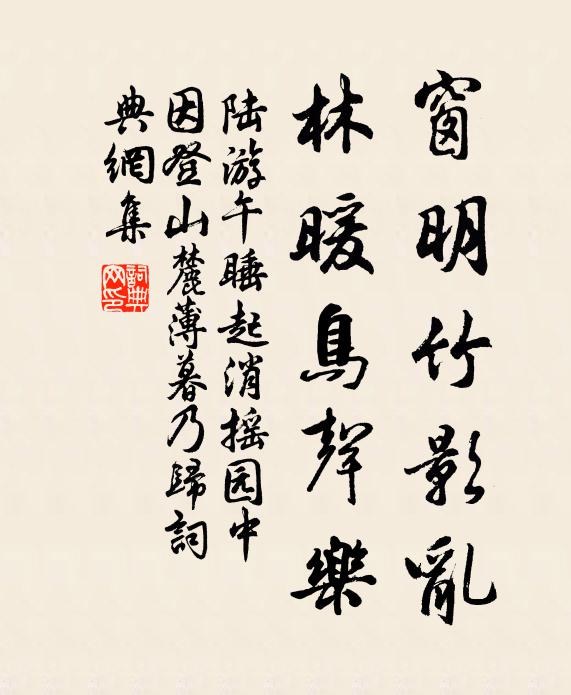 窗明竹影亂
林暖鳥聲樂
陆游午睡起消摇园中
因登山麓薄暮乃歸詞
典網集
詞典网印